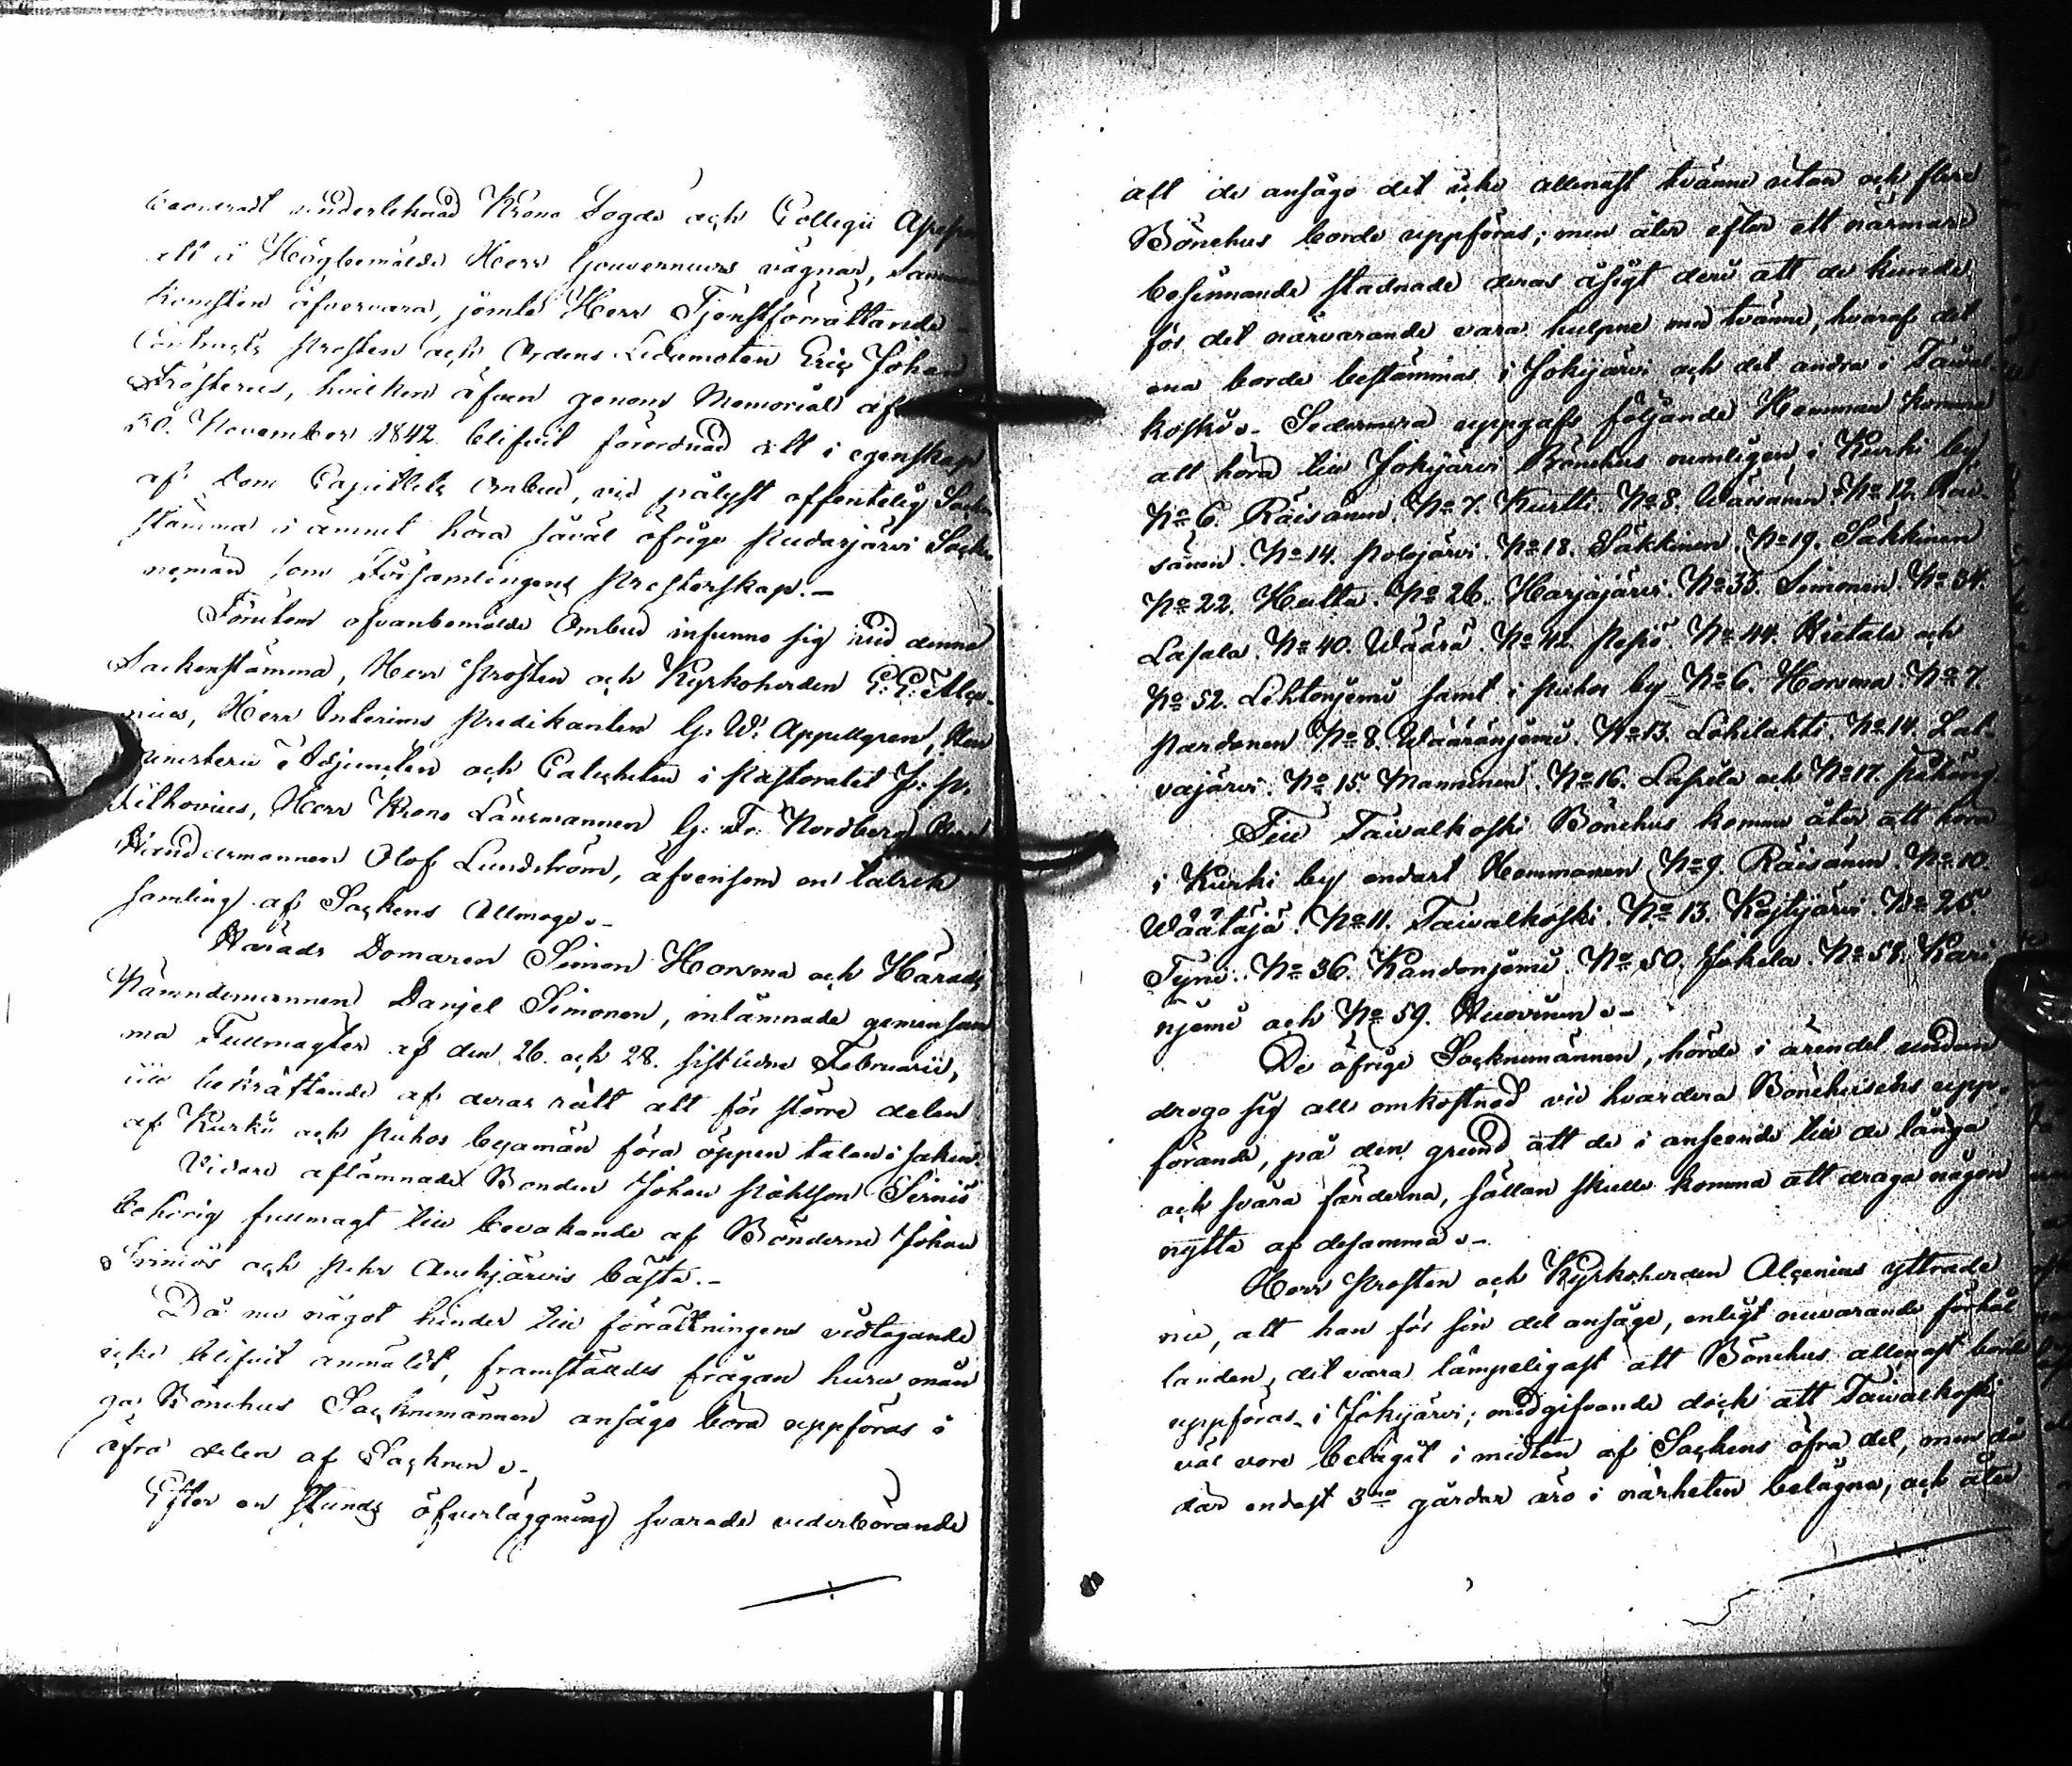 undertecknad Krono Fogde och Collegii
att å Högbemälde Herr Gouverneurs vägnar,
komsten öfvervara, jemte Herr Tjenstförrättande
Contracts Prosten och Ordens Ledamoten Eric Johan
Frosterus, hvilken äfven genom Memorial af
30. November 1842 blifvit förordnad att i egenskap
af Dom Capitlets Ombud, vid pålyst offentelig
stämma i ämnet höra såväl öfrige Pudasjärvi Socke
nemän som Församlingens Presterskap.—
Förutom ofvanbemälde Ombud infunno sig vid denna
Sockenstämma, Herr Prosten och Kyrkoherden
Herr Interims Predikanten G. W. Appellgren,
Adjuncten och Catecheten i Pastoratet J. P.
Herr Krono Länsmannen G. Fr. Nordberg,
Olof Lundström, äfvensom en talrik
samling af Sockens Allmoge.—
Härads Domaren Simon Horsma och Härads
Nämndemannen Danjel Simonen, inlämnade gemensam
ma Fullmagter af den 26. och 28. sistledne Februarii,
till bekräftande af deras rätt att för större delen
af Kurki och Puhos byamän föra öppen talan i saken.
Vidare aflämnade Bonden Johan Påhlson Sirniö
behörig fullmagt till bevakande af Bönderne Johan
Sirniös och Pehr bästa.—
Då nu något hinder till förrättningens vidtagande
icke blifvit anmäldt, framstäldes frågan huru mån
ga Bönehus Socknemännen ansågo böra uppföras i
öfra delen af Socknen.—
Efter en stunds öfverläggning svarade vederbörande
att de ansågo det icke allenast tvänne utan och flere
Bönehus borde uppföras; men åter efter ett närmare
besinnande stadnade deras åsigt deri att de kunde
för det närvarande vara hulpne med tvänne, hvaraf det
ena borde bestämmas i Jokijärvi och det andra i Taival-
koski.— Sedermera uppgafs följande Hemman komma
att höra till Jokijärvi Bönehus nemligen i Kurki by
No 6. Räisänen. No 7. Kurtti. No 8. Wäisänen. No 12. Räi-
sänen. No 14. Polojärvi. No 18. Säkkinen. No 19. Säkkinen
No 22. Hulta. No 26. Harjajärvi. No 33. Simonen. No 34.
Lasala. No 40. Wäärä. No 42. No 44. Hietala och
No 52. Lehtonjemi samt i Puhos by No 6. Horsma. No 7.
Pardanen No 8. Wääränjemi. No 13. Lohilahti, No 14. Lat-
vajärvi. No 15. Manninen. No 16. Lapila och No 17.
Till Taivalkoski Bönehus komme åter att höra
i Kurki by endast Hemmanen No 9. Räisänen. No 10.
Wäätäjä. No 11. Taivalkoski. No 13. Kojtijärvi. No 25.
Tyni. No 36. Kandonjemi. No 50. Jokela. No 58. Kari
njemi och No 59. Huovinen.—
De öfrige Socknemännen, hörde i ärendet undan
drogo sig all omkostnad vid hvardera Bönehusens upp-
förande, på den grund att de i anseende till de långa
och svåra färderna, sällan skulle komma att draga någon
nytta af desamma.—
Herr Prosten och Kyrkoherden Alcenius yttrade
nu, att han för sin del ansåge, enligt nuvarande förhål
landen, det vara lämpeligast att Bönehus allenast borde
uppföras i Jokijärvi; medgifvande dock att Taivalkoski
väl vore beläget i midten af Sockens öfra del, men då
där endast 3ne gårdar äro i närheten belägna, och åter